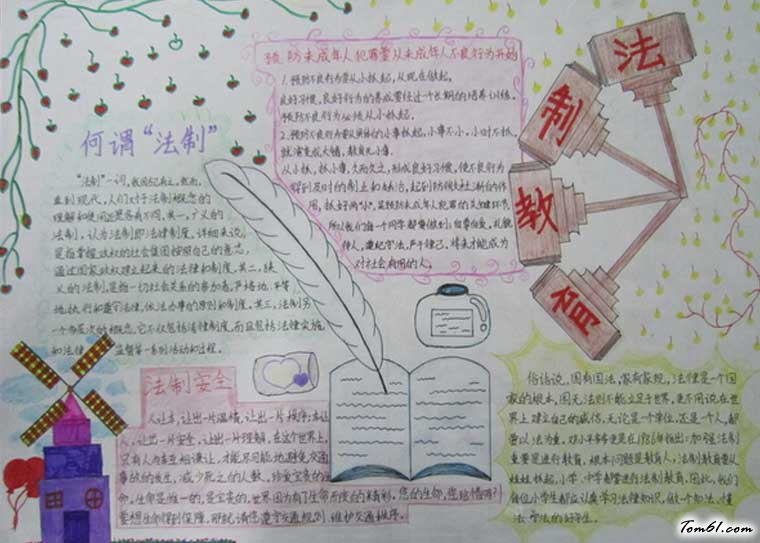 预防未成年人犯罪要从未成年人不良行为开始
1.预防不良行为要从小抓起,从现在做起。
良好习惯,良好行为的养成要经过一个长期的培养训练。
预防不良行为必须从小抓起。
2.预防不良行为要从身边的小事抓起,小事不小,小时不抓,
就演变成大错,教育无小事。
从小抓,抓小事,久而久之,形成良好习惯,使不良行为
得到及时的制止和矫治,起到防微杜渐的作
用,抓好两"小",是预防未成年人犯罪的关键环节。
所以我们每一个同学都要做到:自尊自爱,礼貌
待人,遵纪守法,严于律己,将来才能成为
对社会有用的人。
法
制
教
育
何谓"法制"
"法制"一词,我国古已有之。然而,
直到现代,人们对于法制概念的
理解和使用还是各有不同。其一,广义的
法制,认为法制即法律制度。详细来说,
是指掌握政权的社会集团按照自己的意志、
通过国家政权建立起来的法律和制度。其二,狭
义的法制,是指一切社会关系的参加者,严格地、平等
地执行和遵守法律,依法办事的原则和制度。其三,法制另
一个多层次的概念,它不仅包括法律制度,而且包括法律实施
和法律监督等一系列活动和过程。
法制安全
人让车,让出一片温情,让出一片秩序;车让
人,让出一片安全,让出一片理解。在这个世界上,
只有人为车互相谦让,才能尽可能地避免交通
事故的发生,减少死亡的人数。珍爱宝贵的生
命,生命是唯一的,是宝贵的,世界因为有了生命而变的精彩。您的生命,您珍惜吗?
要想生命得到保障,那就请您遵守交通规则,维护交通秩序。
俗话说,国有国法,家有家规,法律是一个国
家的根本,国无法则不能立足于世界,更不用说在世
界上建立自己的威信,无论是一个单位,还是一个人,都
要以法为重,邓小平爷爷更是在1986年指出:加强法制
重要是进行教育,根本问题是教育人,法制教育要从
娃娃抓起,小学、中学都要进行法制教育。因此,我们
每位小学生都应认真学习法律知识,做一个知法、懂
法、守法的好学生。
Tom61.com